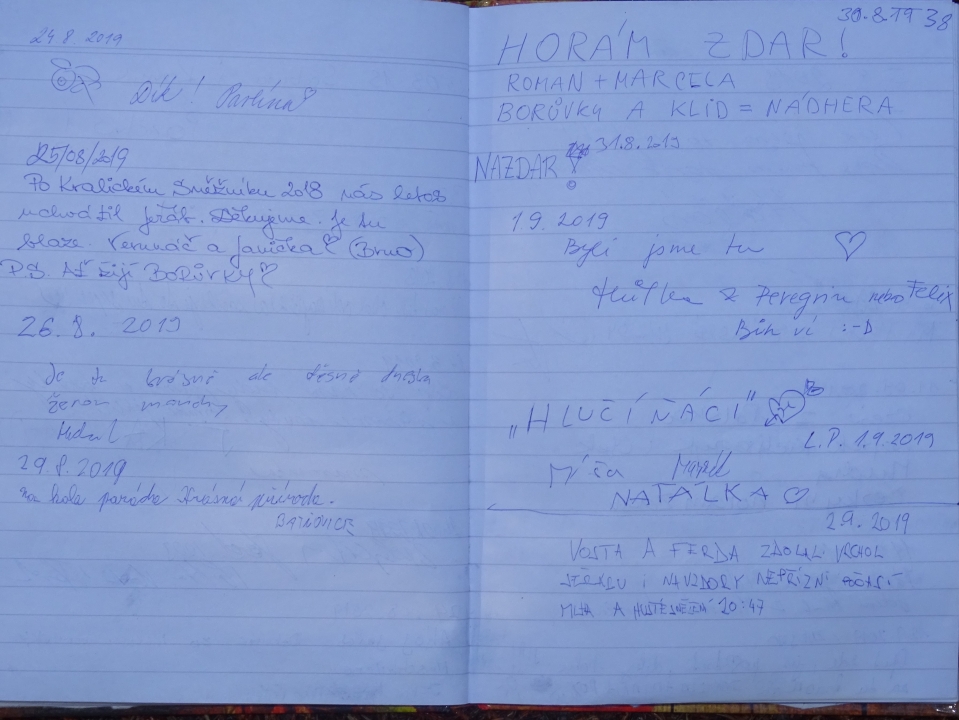 24 8. 2019
Dík! Pavlína
25/08/2019
Po Kralickém Sněžníku 2018 nás letos
uchvátil Jeřáb. Děkujeme. Je tu
blaze. Verunáč a Janička (Brno)
P.S. Ať žijí BORŮVKY
26. 8. 2019
Je tu krásně ale děsně dneska
žerou mouchy
29.8.2019
na kole paráda Krásná příroda.
30.8.19 38
HORÁM ZDAR!
ROMAN + MARCELA
BORŮVKY A KLID = NÁDHERA
NAZDAR! 31.8.2019
1 9. 2019
Byli jsme tu
z Peregrin nebo Felix
Bůh ví :-D
„HLUČÍŇÁCI"
L.P. 1.9.2019
Míša Marek
NATÁLKA
2 9. 2019
VOJTA A FERDA ZDOLALI VRCHOL
JEŘÁBU I NAVZDORY NEPŘÍZNI POČASÍ
MLHA A HUSTÉ 10:47